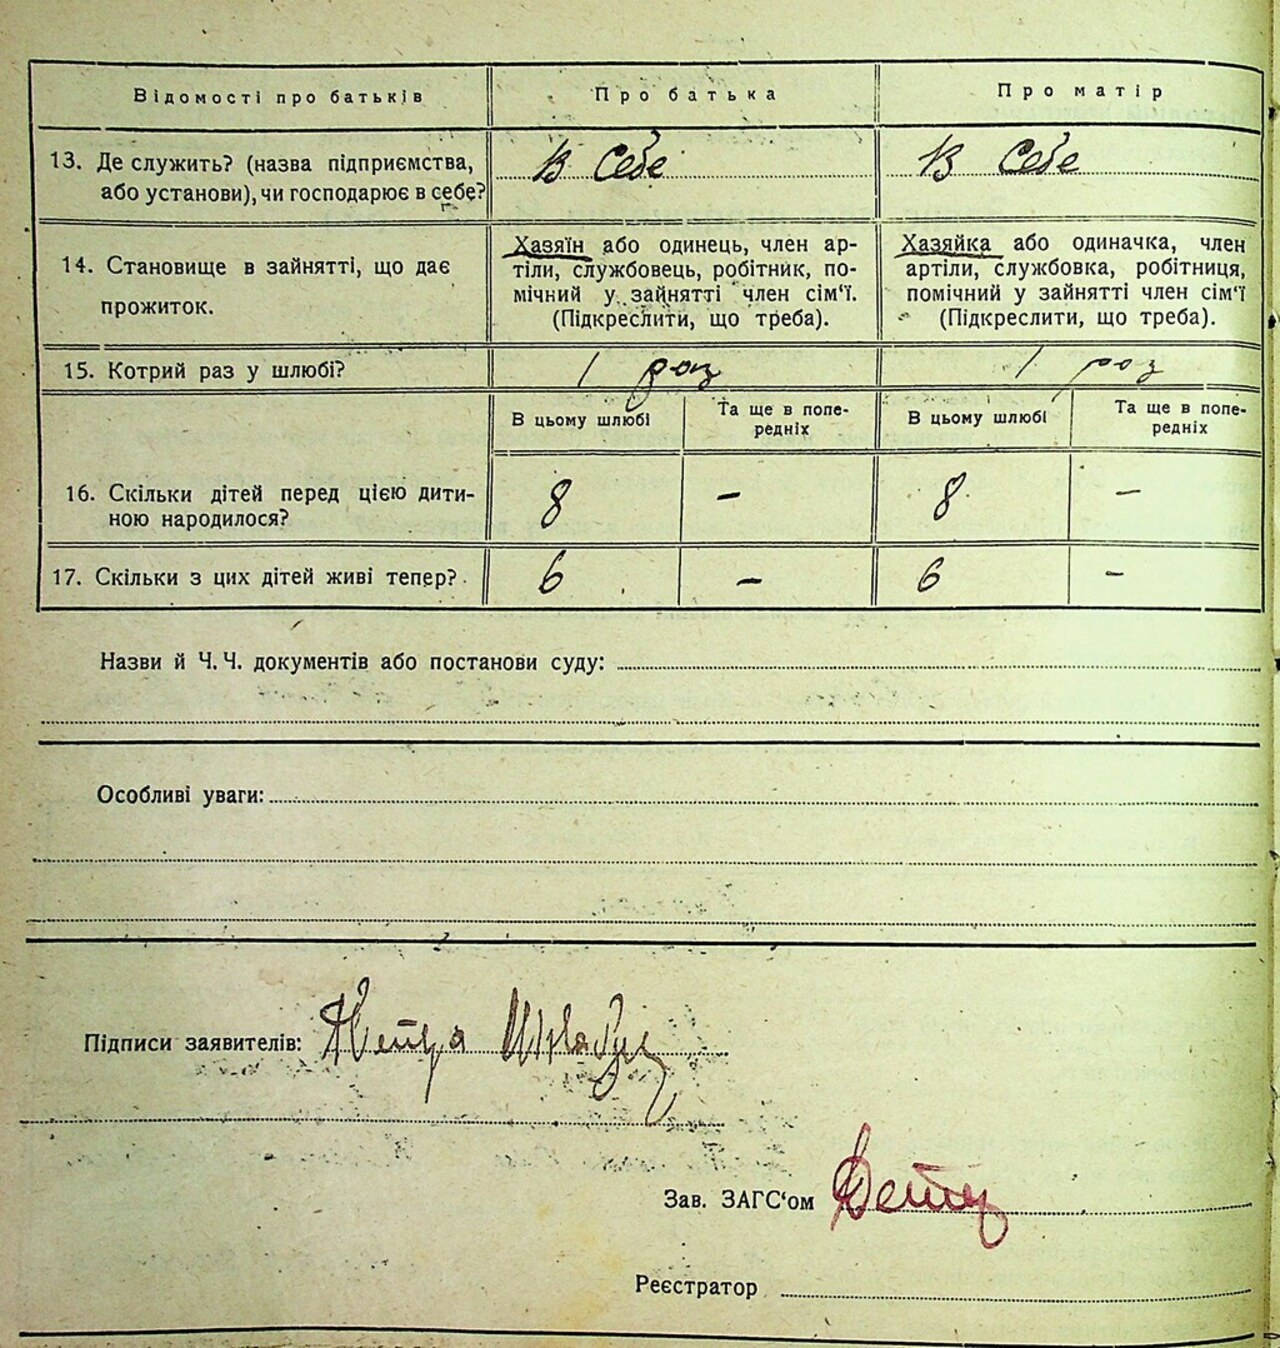 Відомості про батьків
Про батька
Про матір
13. Де служить? (назва підприємства,
або установи), чи господарює в себе?
В себе
В себе
14. Становище в зайнятті, що дає
прожиток.
Хазяїн або одинець, член ар-
тіли, службовець, робітник, по-
мічний у зайнятті член сім‘ї.
(Підкреслити, що треба).
Хазяйка або одиначка, член
артіли, службовка, робітниця,
помічний у зайнятті член сім‘ї
(Підкреслити, що треба).
15. Котрий раз у шлюбі?
1 раз
1 раз
В цьому шлюбі
Та ще в попе-
редніх
В цьому шлюбі
Та ще в попе-
редніх
16. Скільки дітей перед цією дити-
ною народилося?
8
–
8
–
17. Скільки з цих дітей живі тепер?
6
–
6
–
Назви й Ч. Ч. документів або постанови суду:
Особливі уваги:
Підписи заявителів:
Зав. ЗАГС‘ом
Реєстратор